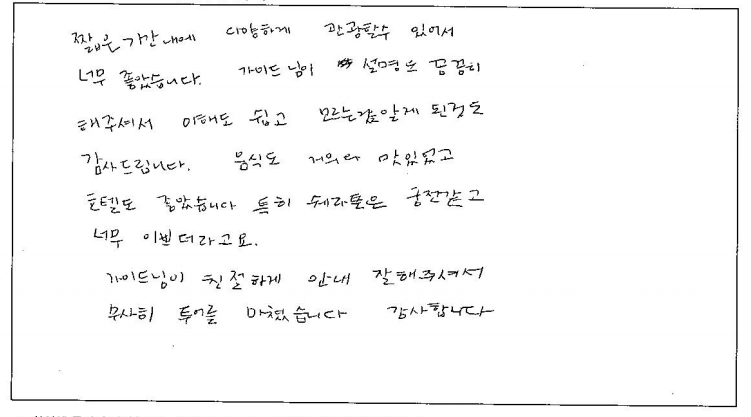 짧은 기간내에 다양하게 관광할수 있어서
너무 좋았습니다. 가이드님이 설명도 꼼꼼히
해주셔서 이해도 쉽고 모르는걸알게 된것도
감사드립니다. 음식도 거의다 맛있었고
호텔도 좋았습니다 특히 쉐라톤은 궁전같고
너무 이쁘더라고요.
가이드님이 친절하게 안내 잘해주셔서
무사히 투어를 마쳤습니다 감사합니다